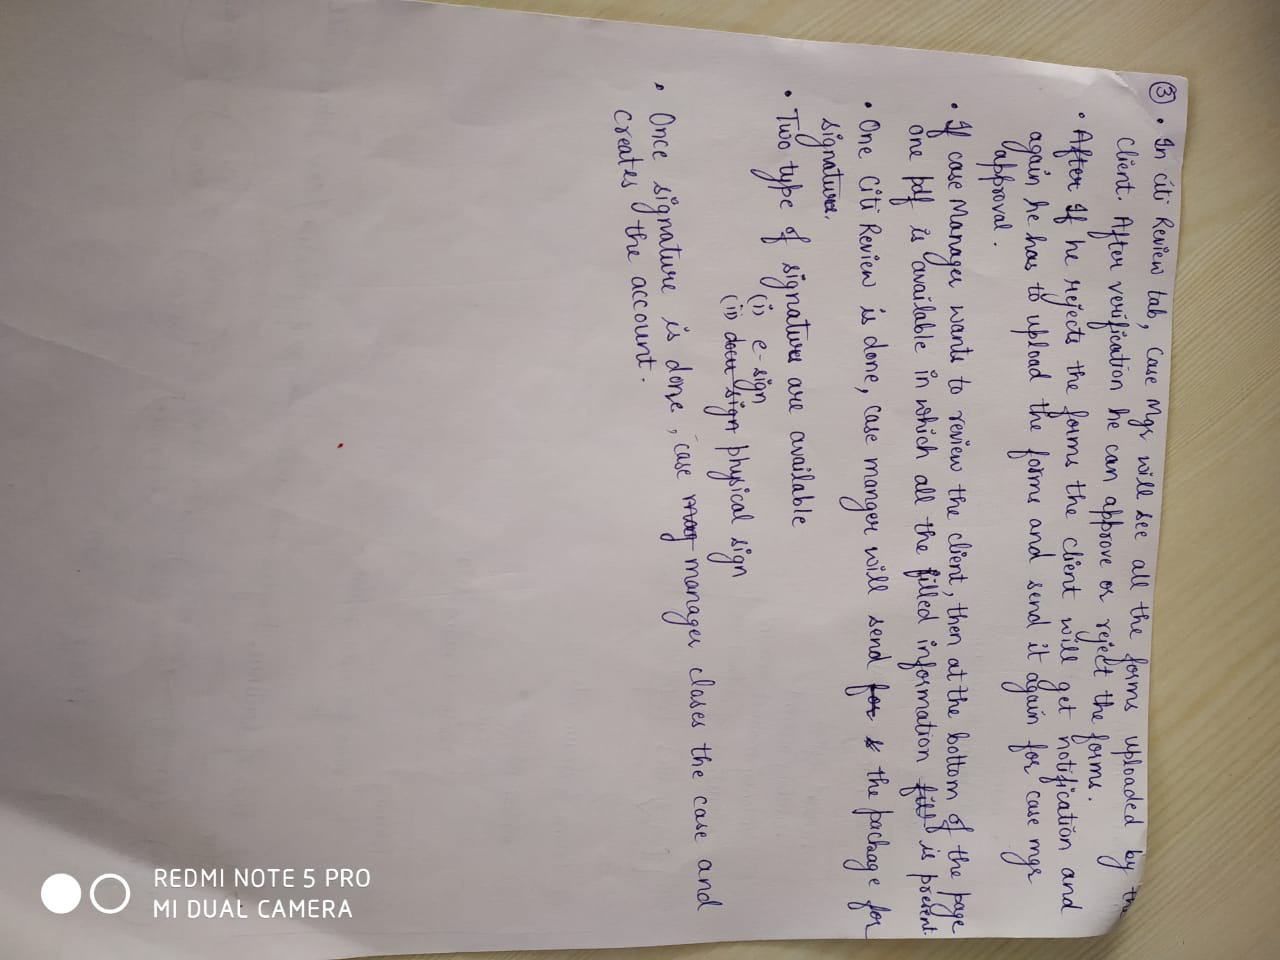 ③ • In citi Review tab, Case Mgr will see all the forms uploaded by the
client. After verification he can approve or reject the forms.
• After If he rejects the forms the client will get notification and
again he has to upload the forms and send it again for case mgr
approval.
• If case Manager wants to review the client, then at the bottom of the page
one pdf is available in which all the filled information fill is present.
• One Citi Review is done, case manger will send for the package for
signature.
• Two type of signature are available
(i) e-sign
(ii) docu sign physical sign
• Once signature is done, case mang manager closes the case and
creates the account.
REDMI NOTE 5 PRO
MI DUAL CAMERA